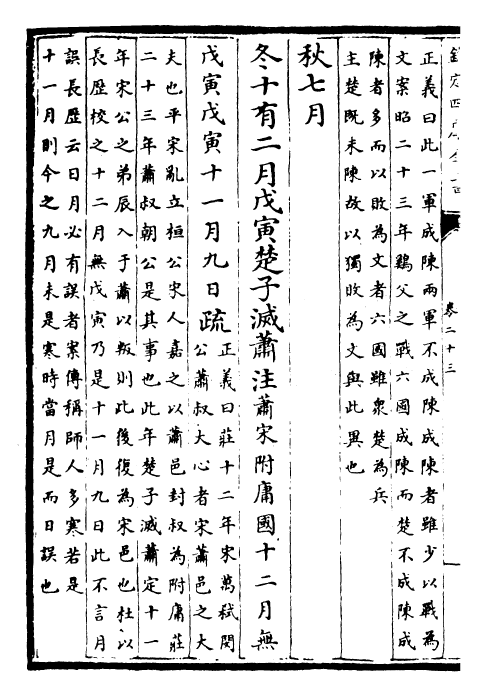 欽定四庫全書
卷二十三
正義曰此一軍成陳兩軍不成陳成陳者雖少以戰為
文案昭二十三年鷄父之戰六國成陳而楚不成陳成
陳者多而以敗為文者六國雖衆楚為兵
主楚既未陳故以獨敗為文與此異也
秋七月
冬十有二月戊寅楚子滅蕭注蕭宋附庸國十二月無
戊寅戊寅十一月九日疏正義曰莊十二年宋萬弒閔
公蕭叔大心者宋蕭邑之大
夫也平宋亂立桓公宋人嘉之以蕭邑封叔為附庸莊
二十三年蕭叔朝公是其事也此年楚子滅蕭定十一
年宋公之弟辰入于蕭以叛則此後復為宋邑也杜以
長歴校之十二月無戊寅乃是十一月九日此不言月
誤長歴云日月必有誤者案傳稱師人多寒若是
十一月則今之九月未是寒時當月是而日誤也